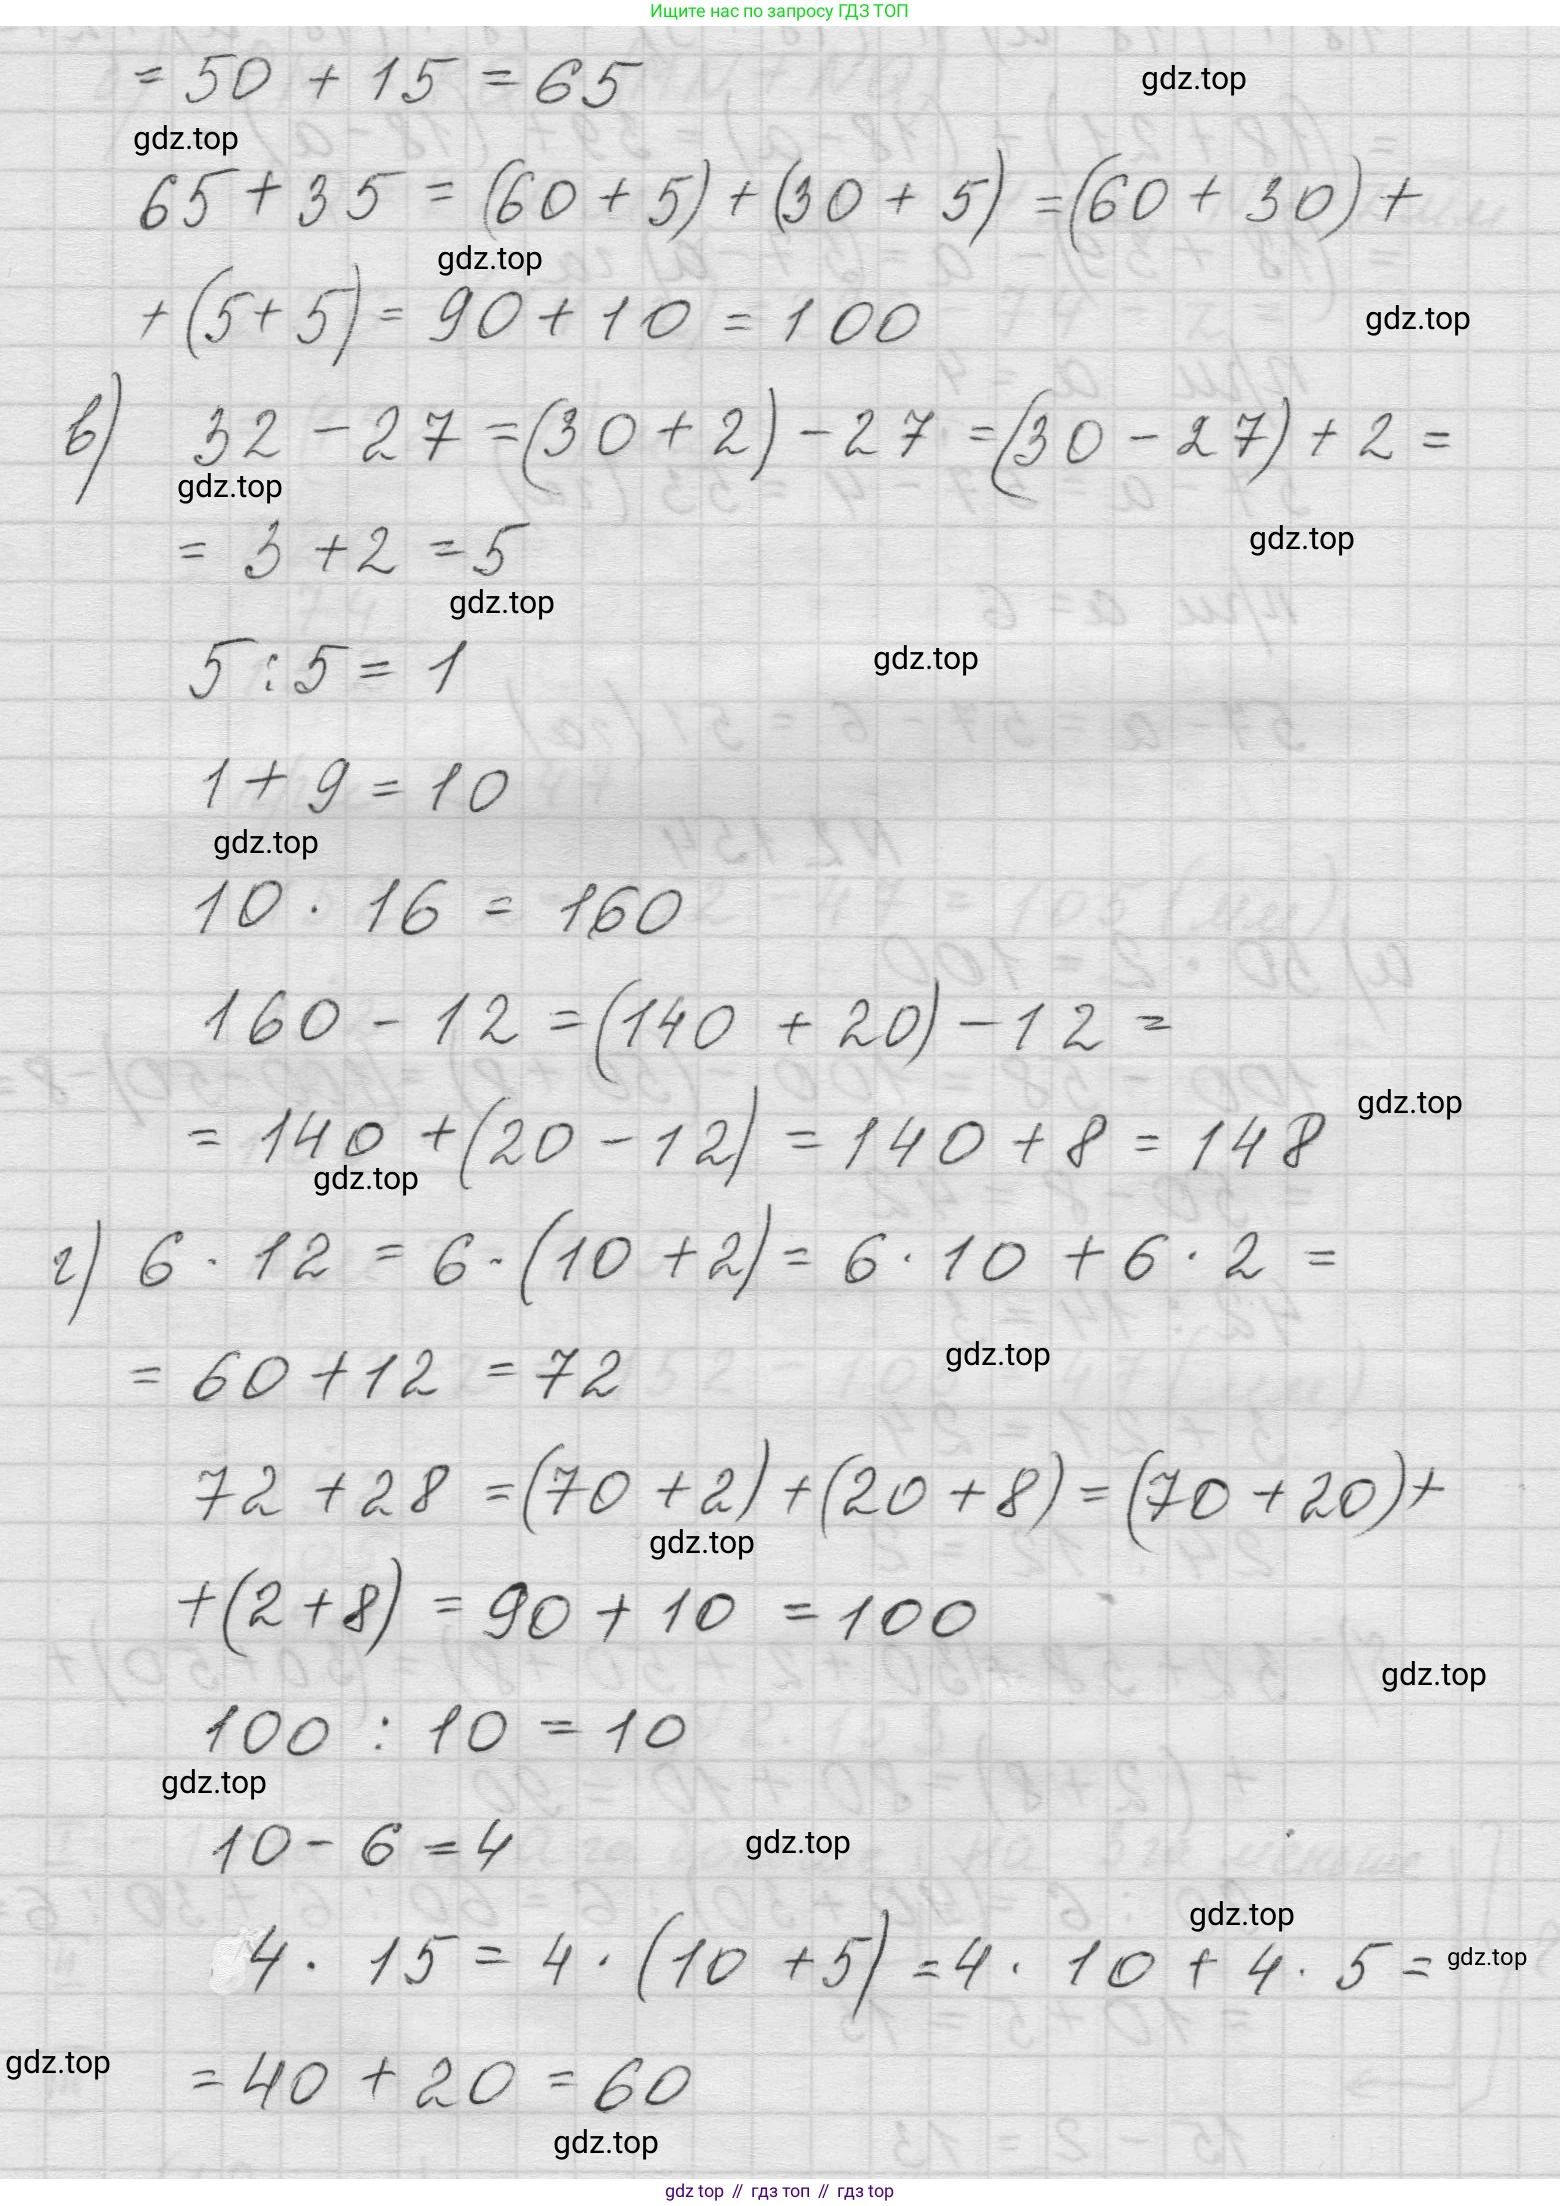 Ищите нас по запросу ГДЗ ТОП
= 50 + 15 = 65
gdz.top
gdz.top
65 + 35 = (60 + 5) + (30 + 5) = (60 + 30) +
gdz.top
+ (5 + 5) = 90 + 10 = 100
gdz.top
в) 32 - 27 = (30 + 2) - 27 = (30 - 27) + 2 =
gdz.top
= 3 + 2 = 5
gdz.top
gdz.top
5 : 5 = 1
gdz.top
1 + 9 = 10
gdz.top
10 · 16 = 160
160 - 12 = (140 + 20) - 12 =
gdz.top
= 140 + (20 - 12) = 140 + 8 = 148
gdz.top
г) 6 · 12 = 6 · (10 + 2) = 6 · 10 + 6 · 2 =
gdz.top
= 60 + 12 = 72
72 + 28 = (70 + 2) + (20 + 8) = (70 + 20) +
gdz.top
+ (2 + 8) = 90 + 10 = 100
gdz.top
100 : 10 = 10
gdz.top
10 - 6 = 4
gdz.top
gdz.top
4 · 15 = 4 · (10 + 5) = 4 · 10 + 4 · 5 =
gdz.top
gdz.top
= 40 + 20 = 60
gdz.top
gdz top // гдз топ // гдз top